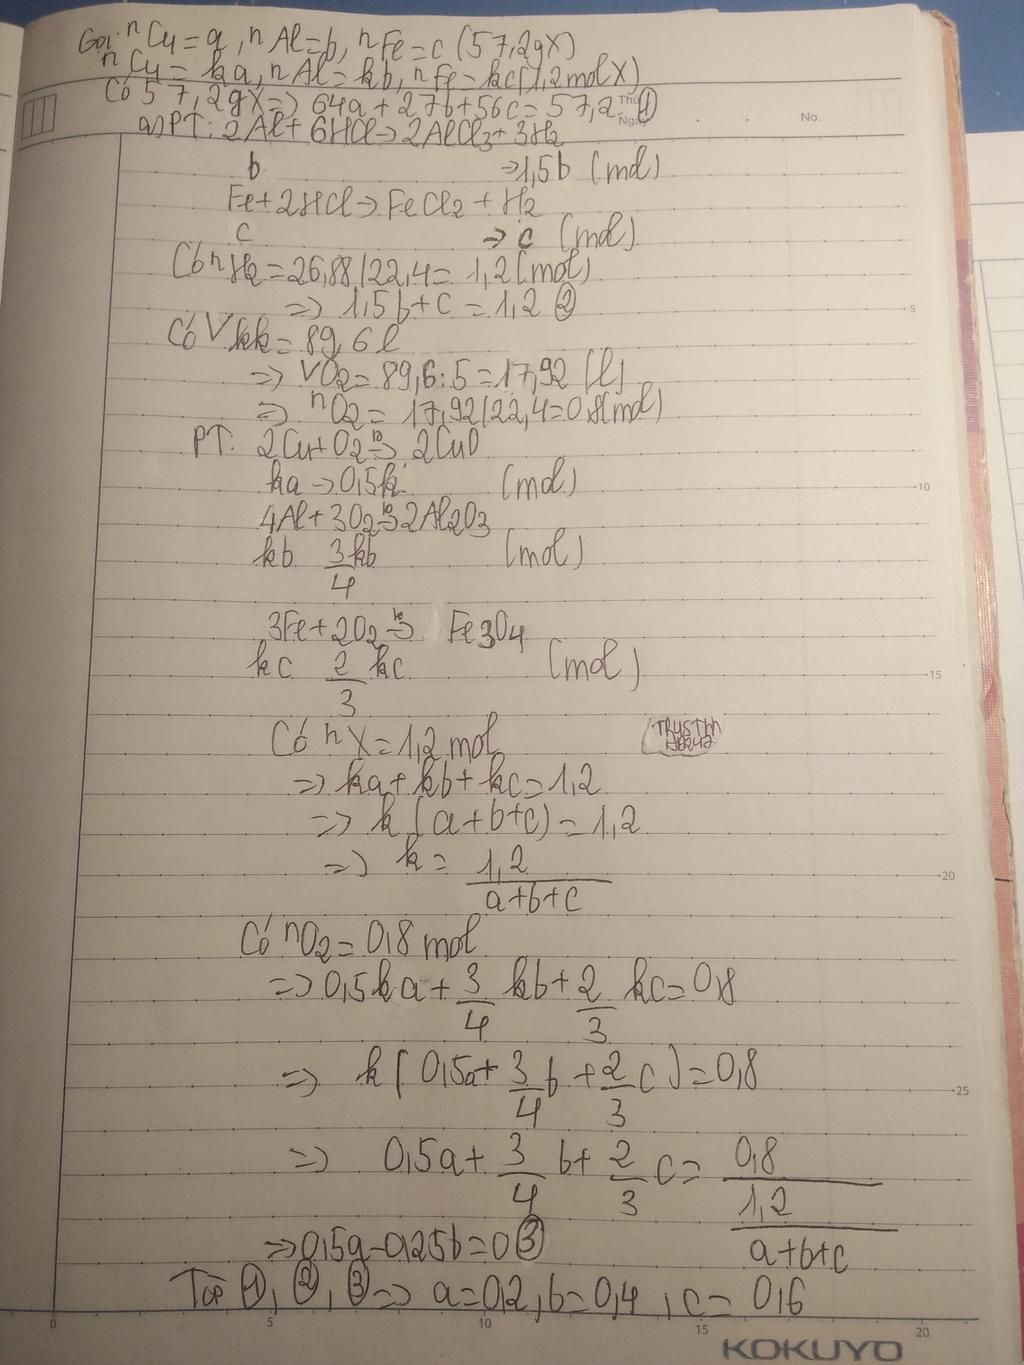 Gọi nCu = a, nAl = b, nFe = c (57,2gX)
nCu = ka, nAl = kb, nFe = kc (1,2molX)
Có 57,2gX => 64a + 27b + 56c = 57,2 ①
No.
a) PT: 2Al + 6HCl -> 2AlCl3 + 3H2
b -> 1,5b (mol)
Fe + 2HCl -> FeCl2 + H2
c -> c (mol)
Có nH2 = 26,88/22,4 = 1,2 (mol)
=> 1,5b + c = 1,2 ②
5
Có Vkk = 89,6 l
=> VO2 = 89,6 : 5 = 17,92 (l)
=> nO2 = 17,92/22,4 = 0,8(mol)
PT: 2Cu + O2 -to-> 2CuO
ka -> 0,5k (mol)
10
4Al + 3O2 -to-> 2Al2O3
kb 3/4 kb (mol)
3Fe + 2O2 -to-> Fe3O4
kc 2/3 kc (mol)
15
Có nX = 1,2 mol
=> ka + kb + kc = 1,2
=> k (a+b+c) = 1,2
=> k = 1,2/(a+b+c)
20
Có nO2 = 0,8 mol
=> 0,5ka + 3/4 kb + 2/3 kc = 0,8
=> k ( 0,5a + 3/4 b + 2/3 c ) = 0,8
25
=> 0,5a + 3/4 b + 2/3 c = 0,8/(1,2/(a+b+c))
=> 0,5a - 0,25b = 0 ③
Từ ①, ②, ③ => a = 0,2, b = 0,4, c = 0,6
0 5 10 15 20
KOKUYO